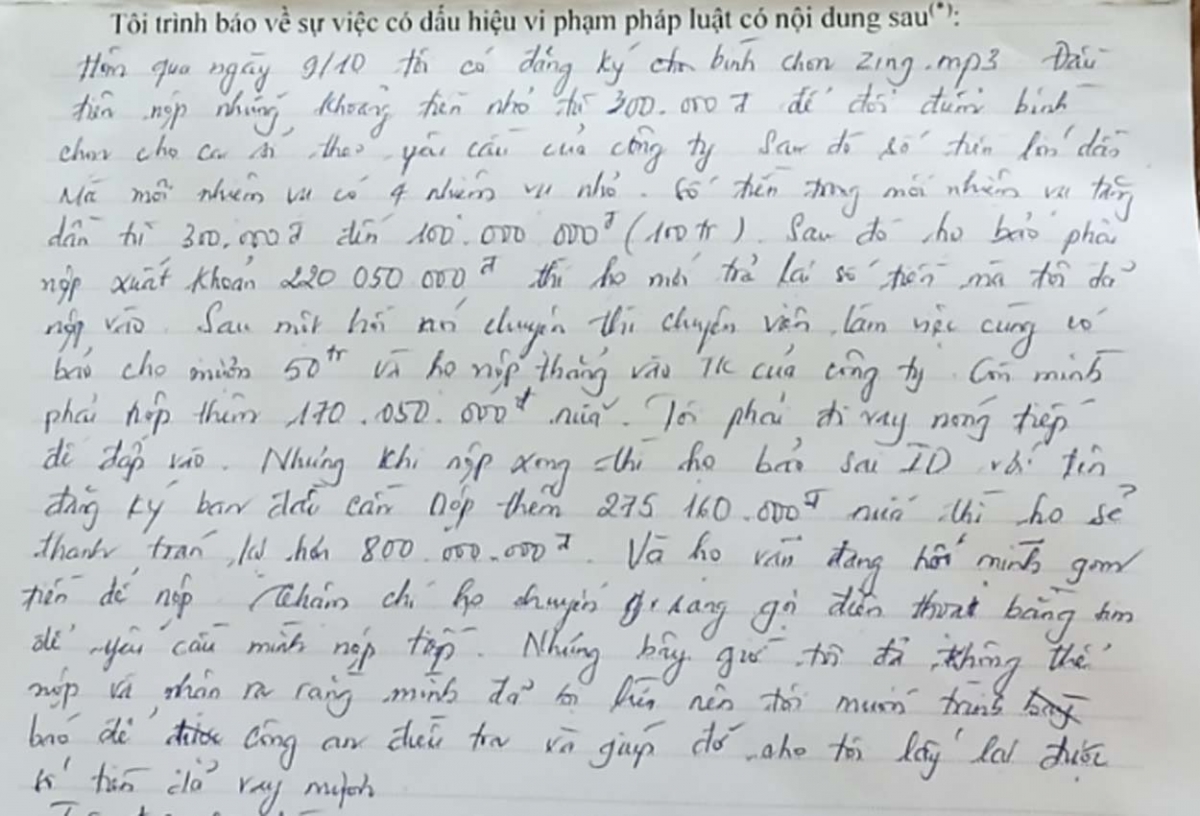 Tôi trình báo về sự việc có dấu hiệu vi phạm pháp luật có nội dung sau(*):
Hôm qua ngày 9/10 tôi có đăng ký bình chọn Zing.mp3 Đầu
tiên nộp những khoảng tiền nhỏ từ 300.000đ để đổi điểm bình
chọn cho ca sĩ theo yêu cầu của công ty Sau đó số tiền lớn dần
Mà mỗi nhiệm vụ có 4 nhiệm vụ nhỏ. Số tiền trong mỗi nhiệm vụ tăng
dần từ 300.000đ đến 100.000 000đ (100tr). Sau đó họ bảo phải
nộp xuất khoản 220 050 000đ thì họ mới trả lại số tiền mà tôi đã
nộp vào. Sau một hồi nói chuyện thì chuyên viên làm việc cùng có
báo cho mượn 50tr và họ nộp thẳng vào TK của công ty. Còn mình
phải nộp thêm 170.050.000đ nữa. Tôi phải đi vay nóng tiếp
để đắp vào. Nhưng khi nộp xong thì họ bảo sai ID với tên
đăng ký ban đầu cần nộp thêm 275 160.000đ nữa thì họ sẽ
thanh toán lại hơn 800.000.000đ. Và họ vẫn đang hối mình gom
tiền để nộp. Thậm chí họ chuyển sang gọi điện thoại bằng sim
để yêu cầu mình nộp tiếp. Nhưng bây giờ tôi đã không thể
nộp và nhận ra rằng mình đã bị lừa nên tôi muốn trình
báo để được công an điều tra và giúp đỡ cho tôi lấy lại được
số tiền đã vay mượn